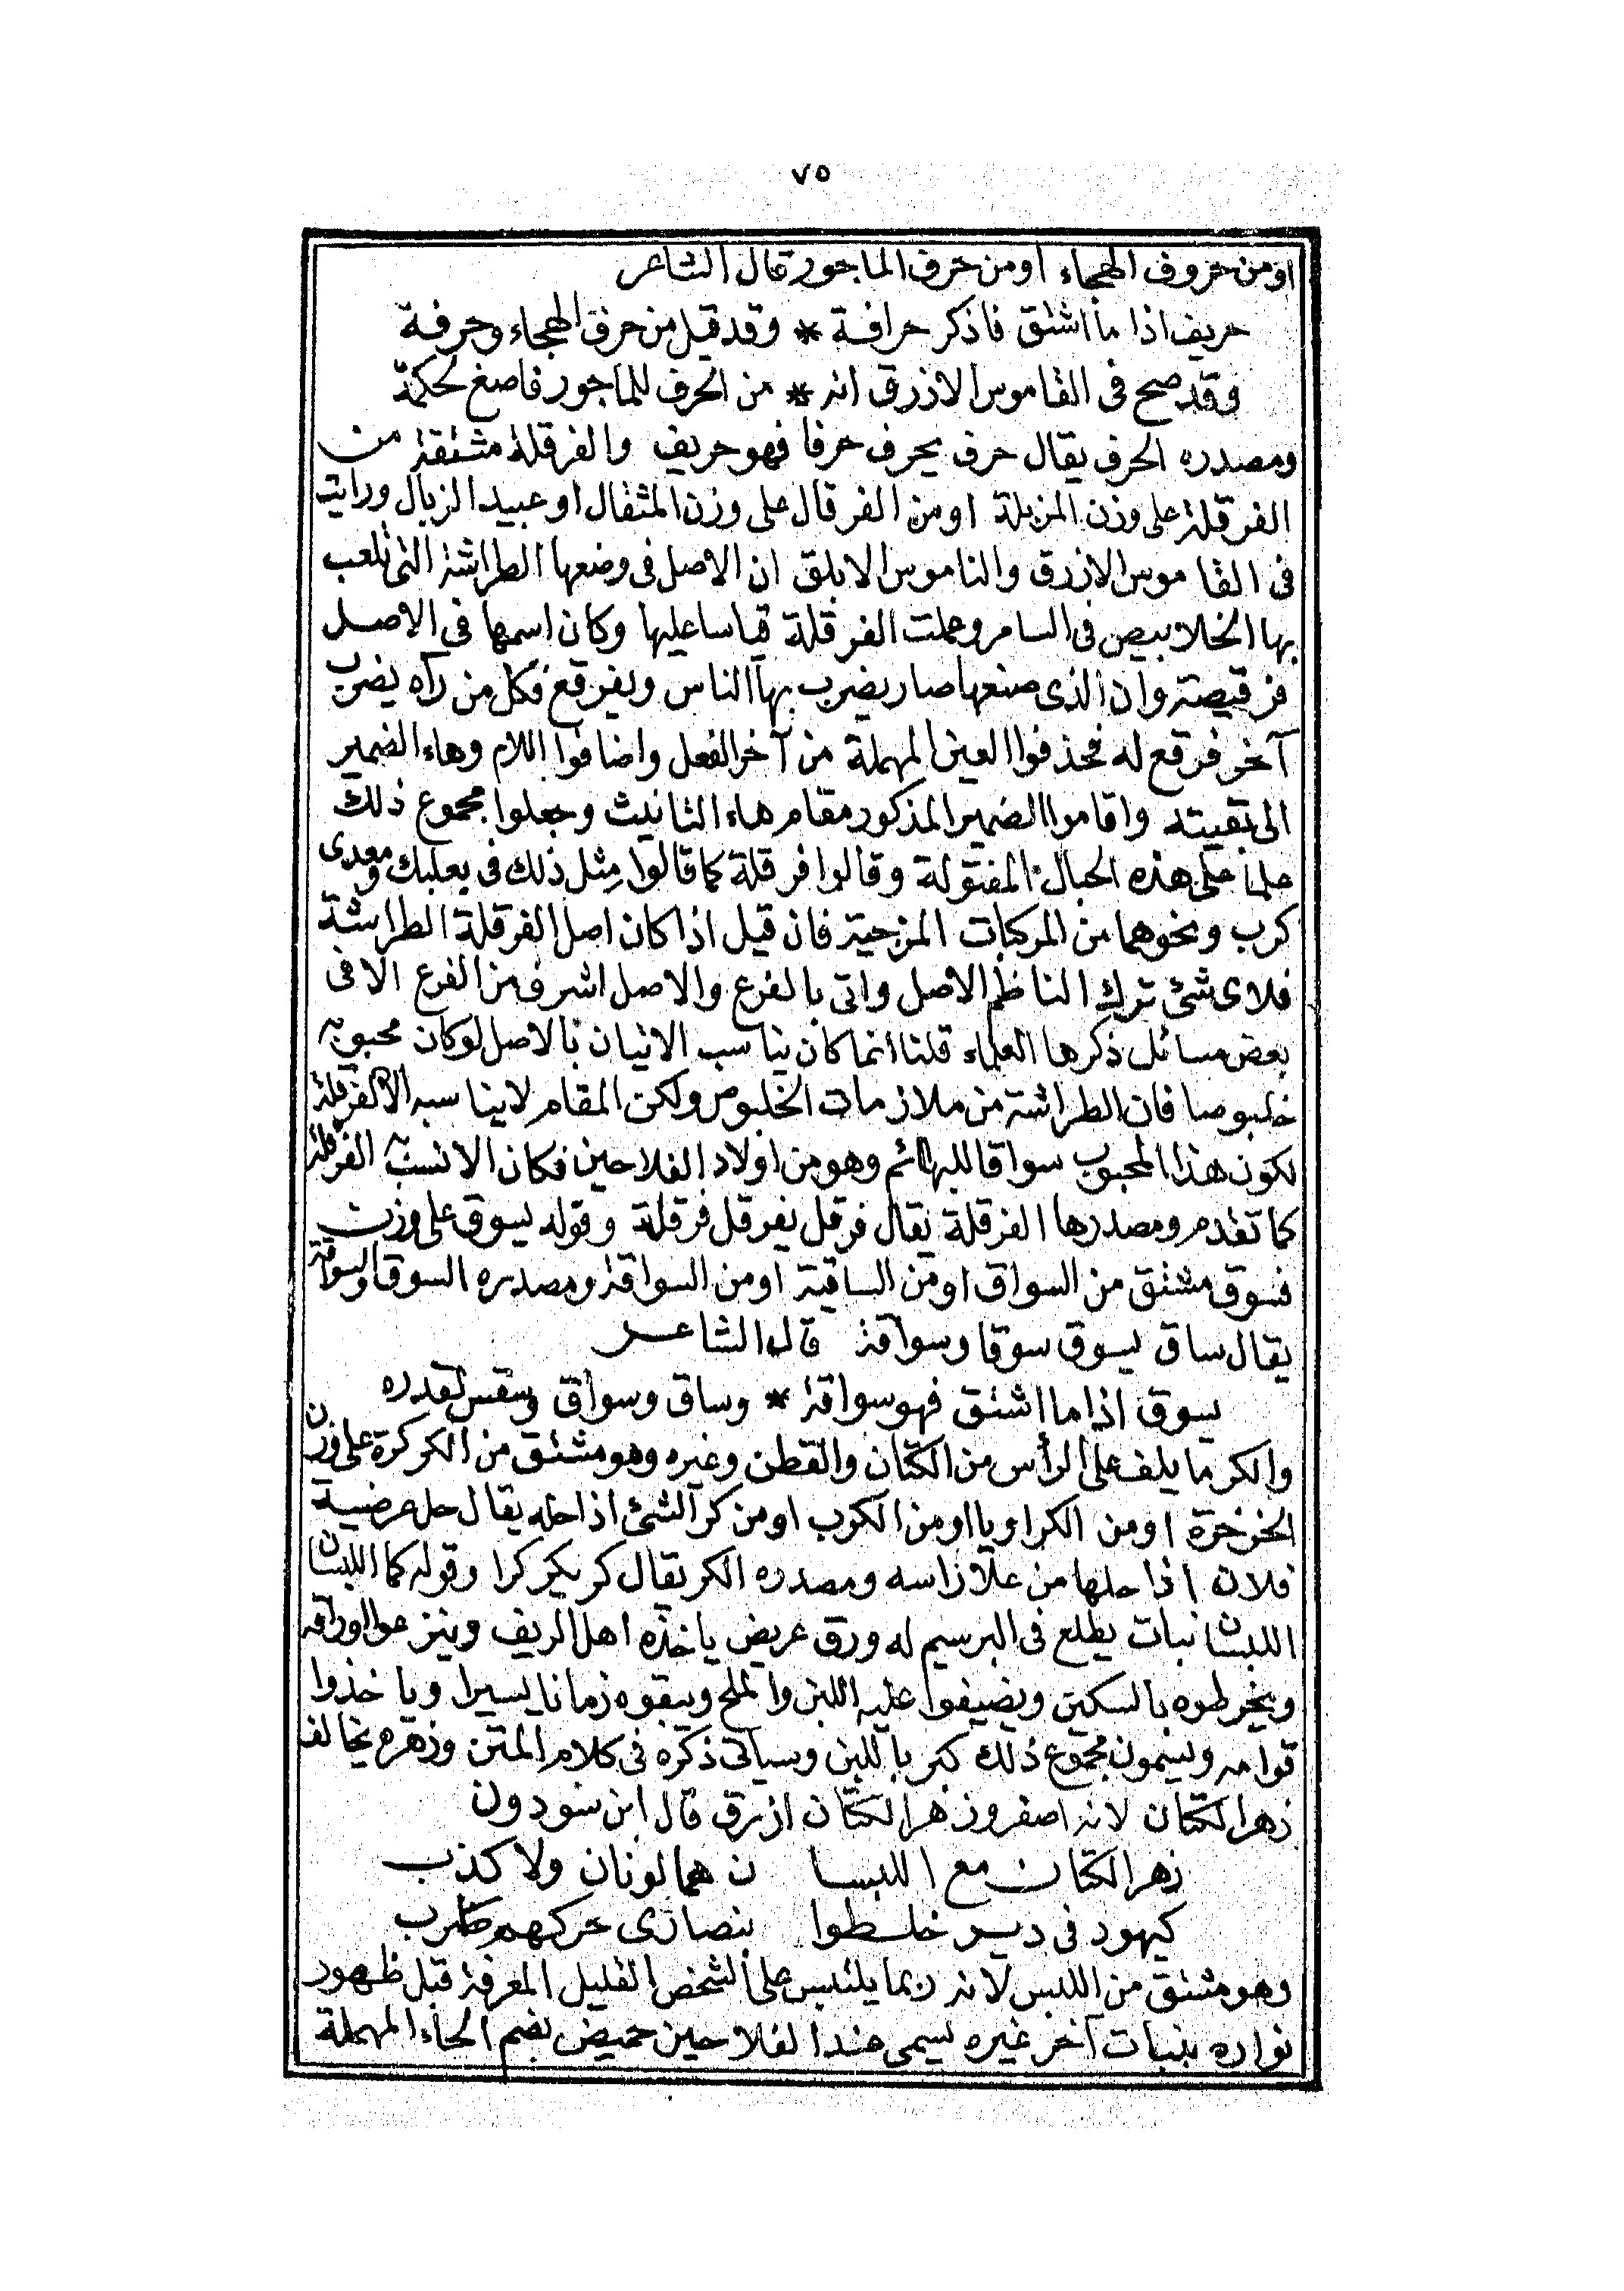 ٧٥
او من حروف الهجاء او من حرف الماجور قال الشاعر
حريف اذا ما اشتق فاذكر حرافة * وقد قيل من حرف الهجاء وحرفة
وقد صح فى القاموس الازرق انه * من الحرف للماجور فاصغ لحكمة
ومصدره الحرف يقال حرف يحرف حرفا فهو حريف والفرقلة مشتقة من
الفرقلة على وزن المزبلة او من الفرقال على وزن المثقال او عبيد الزبال ورايت
فى القاموس الازرق والناموس الابلق ان الاصل فى وضعها الطراشة التى تلعب
بها الخلابيص فى السامر وعملت الفرقلة قياسا عليها وكان اسمها فى الاصل
فرقيصة وان الذى صنعها صار يضرب بها الناس ويفرقع فكل من رآه يضرب
آخر فرقع له فحذفوا العين المهملة من آخر الفعل واضافوا اللام وهاء الضمير
الى بقيته واقاموا الضمير المذكور مقام هاء التانيث وجعلوا مجموع ذلك
علما على هذه الحبال المفتولة وقالوا فرقلة كما قالوا مثل ذلك فى بعلبك ومعدى
كرب ونحوهما من المركبات المزجية فان قيل اذا كان اصل الفرقلة الطراشة
فلاى شئ ترك الناظم الاصل واتى بالفرع والاصل اشرف من الفرع الا فى
بعض مسائل ذكرها العلماء قلنا انما كان يناسب الاتيان بالاصل لو كان محبوبه
خلبوصا فان الطراشة من ملازمات الخلبوص ولكن المقام لا يناسبه الا الفرقلة
لكون هذا المحبوب سواقا للبهائم وهو من اولاد الفلاحين فكان الانسب الفرقلة
كما تقدم ومصدرها الفرقلة يقال فرقل يفرقل فرقلة وقوله يسوق على وزن
فسوق مشتق من السواق او من الساقية او من السواقة ومصدره السوق والسواقة
يقال ساق يسوق سوقا وسواقة قال الشاعر
يسوق اذا ما اشتق فهو سواقة * وساق وسواق وسقس لعدره
والكر ما يلف على الرأس من الكتان والقطن وغيره وهو مشتق من الكركرة على وزن
الخرخرة او من الكراويا او من الكرب او من كر الشئ اذا حله يقال حل عرضية
فلان اذا حلها من على راسه ومصدره الكر يقال كر يكر كرا وقوله كما اللبسان
اللبسان نبات يطلع فى البرسيم له ورق عريض ياخذه اهل الريف وينزعوا اوراقه
ويخرطوه بالسكين ويضيفوا عليه اللبن والملح ويبقوه زمانا يسيرا وياخذوا
قوامه ويسمون مجموع ذلك كبر باللبن وسياتى ذكره فى كلام المتن وزهره يخالف
زهر الكتان لانه اصفر وزهر الكتان ازرق قال ابن سودون
زهر الكتان مع اللبسا ن هما لونان ولا كذب
كيهود فى دير خلطوا بنصارى حركهم طرب
وهو مشتق من اللبس لانه ربما يلتبس على الشخص القليل المعرفة قبل ظهور
نواره بنبات آخر غيره يسمى عند الفلاحين حميض بضم الحاء المهملة